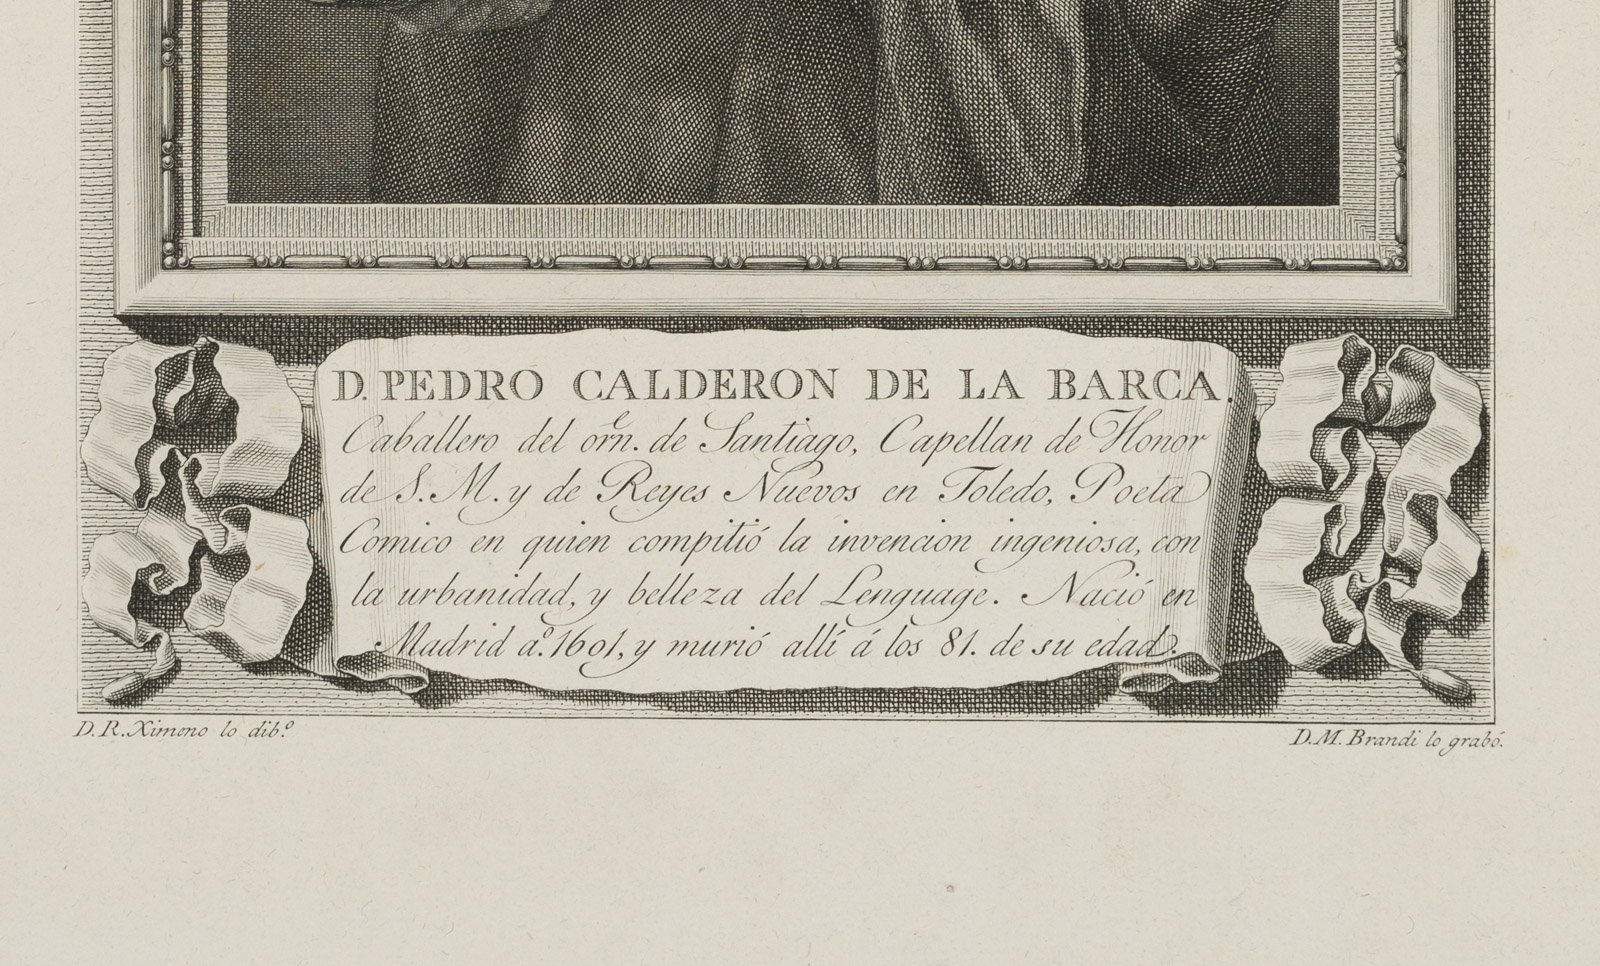 D. PEDRO CALDERON DE LA BARCA.
Caballero del orn.ᵉ de Santiago, Capellan de Honor
de S. M. y de Reyes Nuevos en Toledo, Poeta
Comico en quien compitió la invencion ingeniosa, con
la urbanidad, y belleza del Lenguage. Nació en
Madrid a.º 1601, y murió allí á los 81. de su edad.
D. R. Ximeno lo dib.º
D. M. Brandi lo grabó.